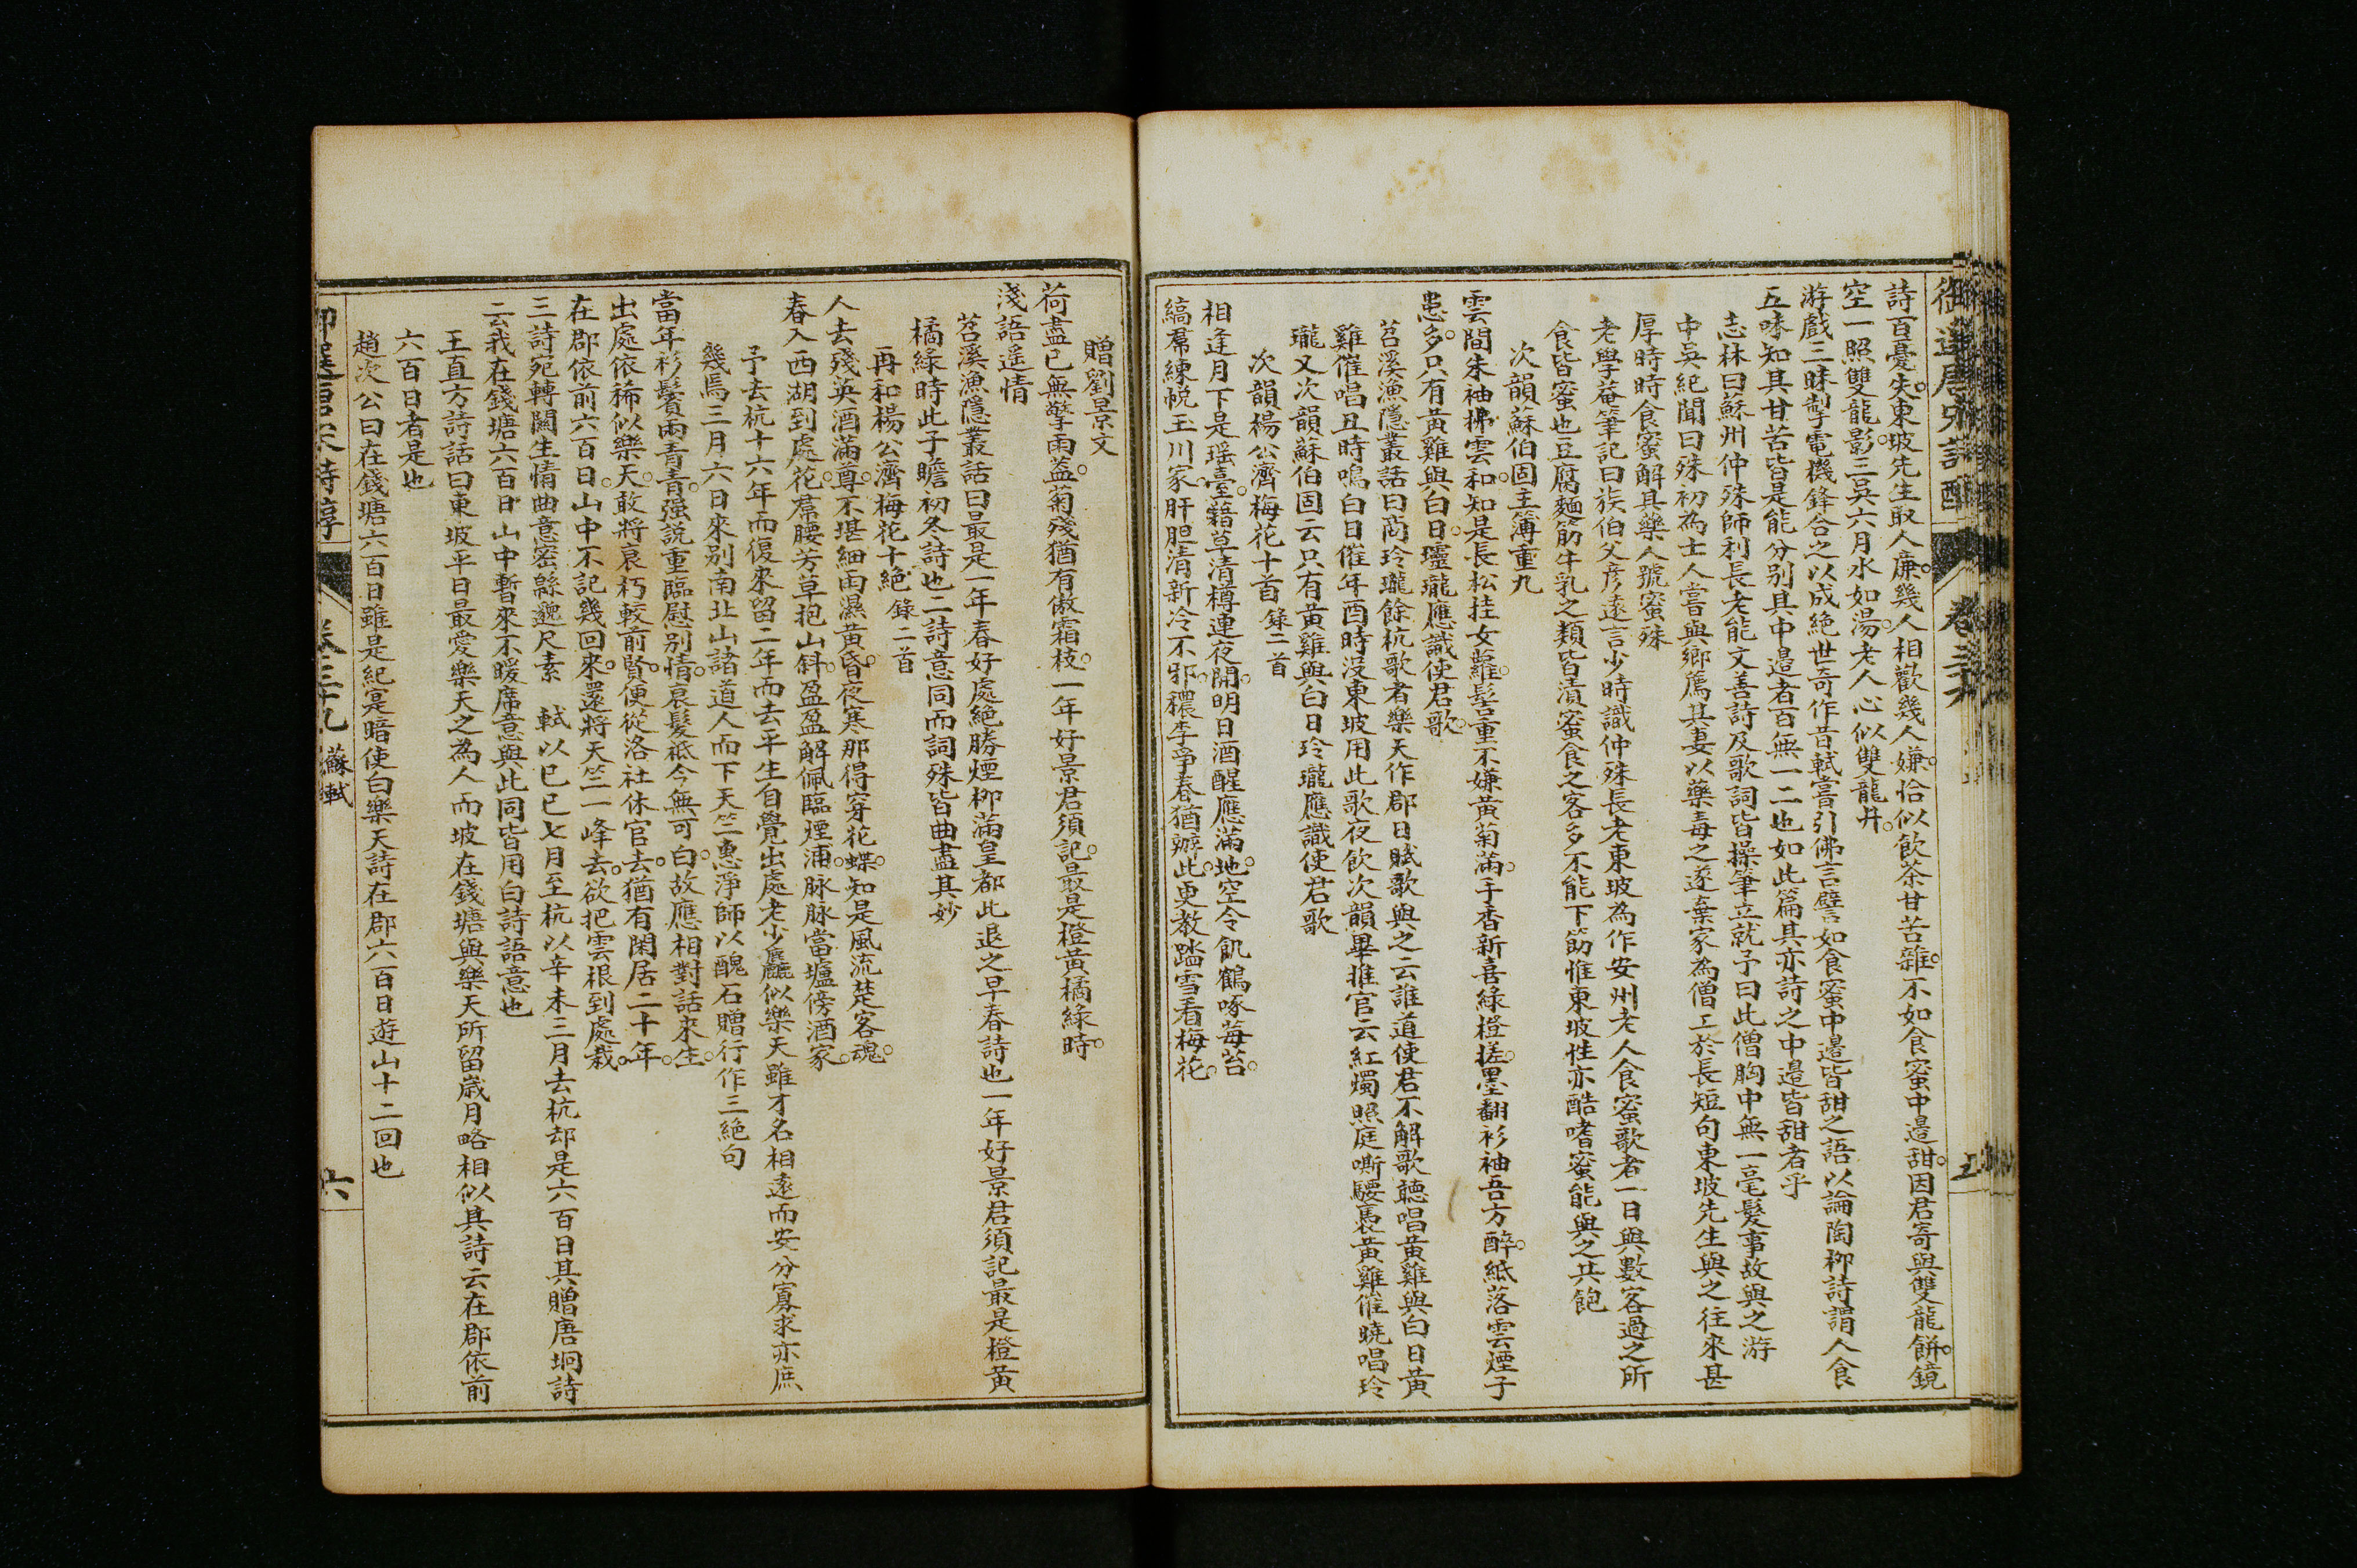 詩百憂失東坡先生取人廉幾人相歡幾人嫌恰似飲茶甘苦雜不如食蜜中邊甜因君寄與雙龍餅鏡
空一照雙龍影三吳六月水如湯老人心似雙龍井
游戲三昧掣電機鋒合之以成絶世奇作昔軾嘗引佛言譬如食蜜中邊皆甜之語以論陶柳詩謂人食
五味知其甘苦皆是能分别其中邊者百無一二也如此篇其亦詩之中邊皆甜者乎
志林曰蘇州仲殊師利長老能文善詩及歌詞皆操筆立就予曰此僧胸中無一毫髮事故與之游
中吳紀聞曰殊初為士人嘗與鄉薦其妻以藥毒之遂棄家為僧工於長短句東坡先生與之往來甚
厚時時食蜜解其藥人號蜜殊
老學菴筆記曰族伯父彦遠言少時識仲殊長老東坡為作安州老人食蜜歌者一日與數客過之所
食皆蜜也豆腐麵筋牛乳之類皆漬蜜食之客多不能下筯惟東坡性亦酷嗜蜜能與之共飽
次韻蘇伯固主簿重九
雲間朱袖拂雲和知是長松挂女蘿髻重不嫌黃菊滿手香新喜綠橙搓墨翻衫袖吾方醉紙落雲煙子
患多只有黃雞與白日瓏應識使君歌
苕溪漁隱叢話曰商玲瓏餘杭歌者樂天作郡日賦歌與之云誰道使君不解歌聽唱黃雞與白日黃
雞催唱丑時鳴白日催年酉時沒東坡用此歌夜飲次韻畢推官云紅燭照庭嘶騕褭黃雞催曉唱玲
瓏又次韻蘇伯固云只有黃雞與白日玲瓏應識使君歌
次韻楊公濟梅花十首 錄二首
相逢月下是瑤臺藉草清樽連夜開明日酒醒應滿地空令飢鶴啄莓苔
縞裠練帨玉川家肝胆清新冷不邪穠李爭春猶辦此更教踏雪看梅花
贈劉景文
荷盡已無擎雨葢菊殘猶有傲霜枝一年好景君須記最是橙黃橘綠時
淺語遙情
苕溪漁隱叢話曰最是一年春好處絶勝煙柳滿皇都此退之早春詩也一年好景君須記最是橙黃
橘綠時此子瞻初冬詩也二詩意同而詞殊皆曲盡其妙
再和楊公濟梅花十絶 錄二首
人去殘英酒滿尊不堪細雨濕黃昏夜寒那得穿花蝶知是風流楚客魂
春入西湖到處花裠腰芳草抱山斜盈盈解佩臨煙浦脉脉當壚傍酒家
予去杭十六年而復來留二年而去平生自覺出處老少麤似樂天雖才名相遠而安分寡求亦庶
幾焉三月六日來别南北山諸道人而下天竺惠淨師以醜石贈行作三絶句
當年衫鬢兩青青强說重臨慰别情衰髮祗今無可白故應相對話來生
出處依稀似樂天敢將衰朽較前賢便從洛社休官去猶有閑居二十年
在郡依前六百日山中不記幾回來還將天竺一峰去欲把雲根到處栽
三詩宛轉關生情曲意密緜邈尺素 軾以己巳七月至杭以辛未三月去杭却是六百日其贈唐坰詩
云我在錢塘六百日山中暫來不暖席意與此同皆用白詩語意也
王直方詩話曰東坡平日最愛樂天之為人而坡在錢塘與樂天所留歲月略相似其詩云在郡依前
六百日者是也
趙次公曰在錢塘六百日雖是紀寔暗使白樂天詩在郡六百日遊山十二回也
蘇軾
六